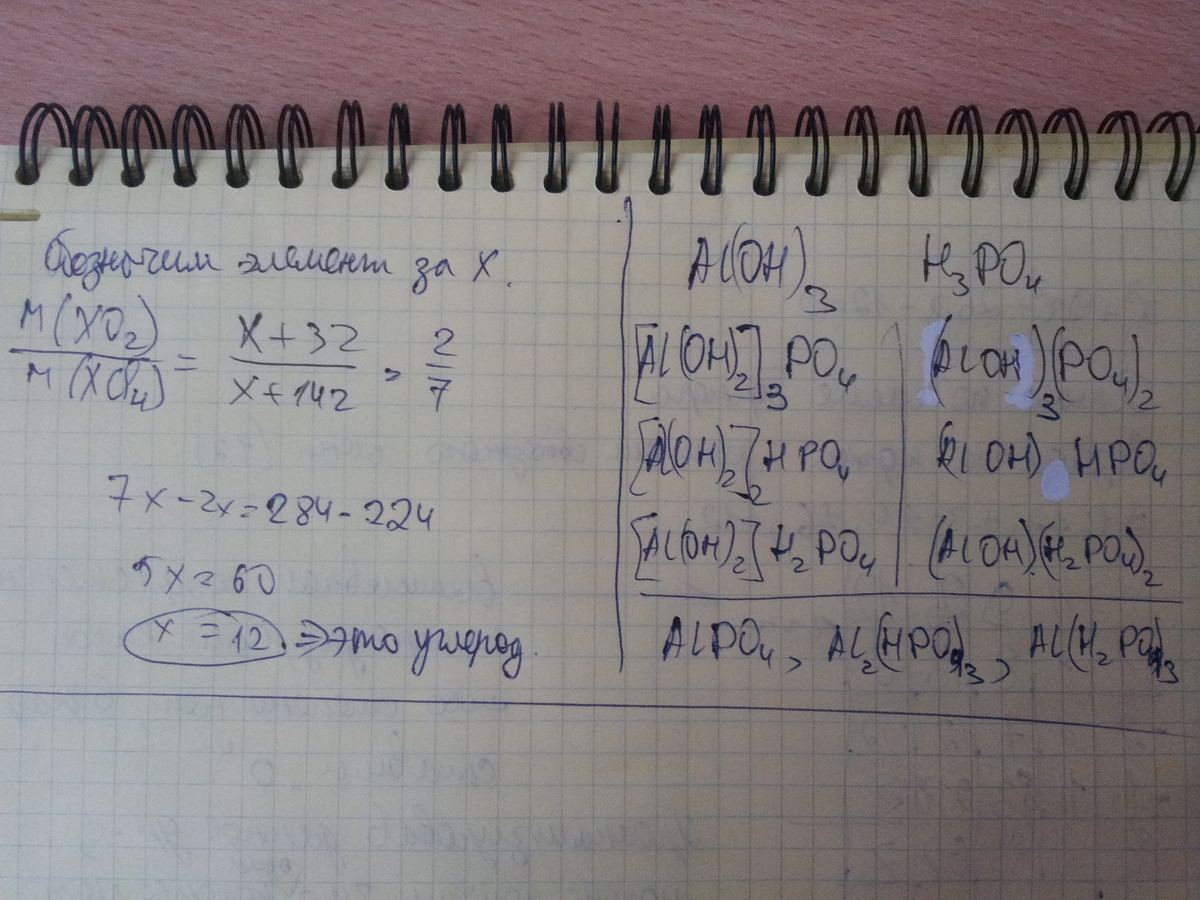 Обозначим элемент за X.
M(XO₂) / M(XCl₄) = X+32 / X+142 = 2/7
7x-2x=284-224
5x=60
x=12. ⇒ это углерод.
Al(OH)₃ H₃PO₄
[Al(OH)₂]₃PO₄ (AlOH)₃(PO₄)₂
[Al(OH)₂]₂HPO₄ (AlOH)HPO₄
[Al(OH)₂]H₂PO₄ (AlOH)(H₂PO₄)₂
AlPO₄, Al₂(HPO₄)₃, Al(H₂PO₄)₃